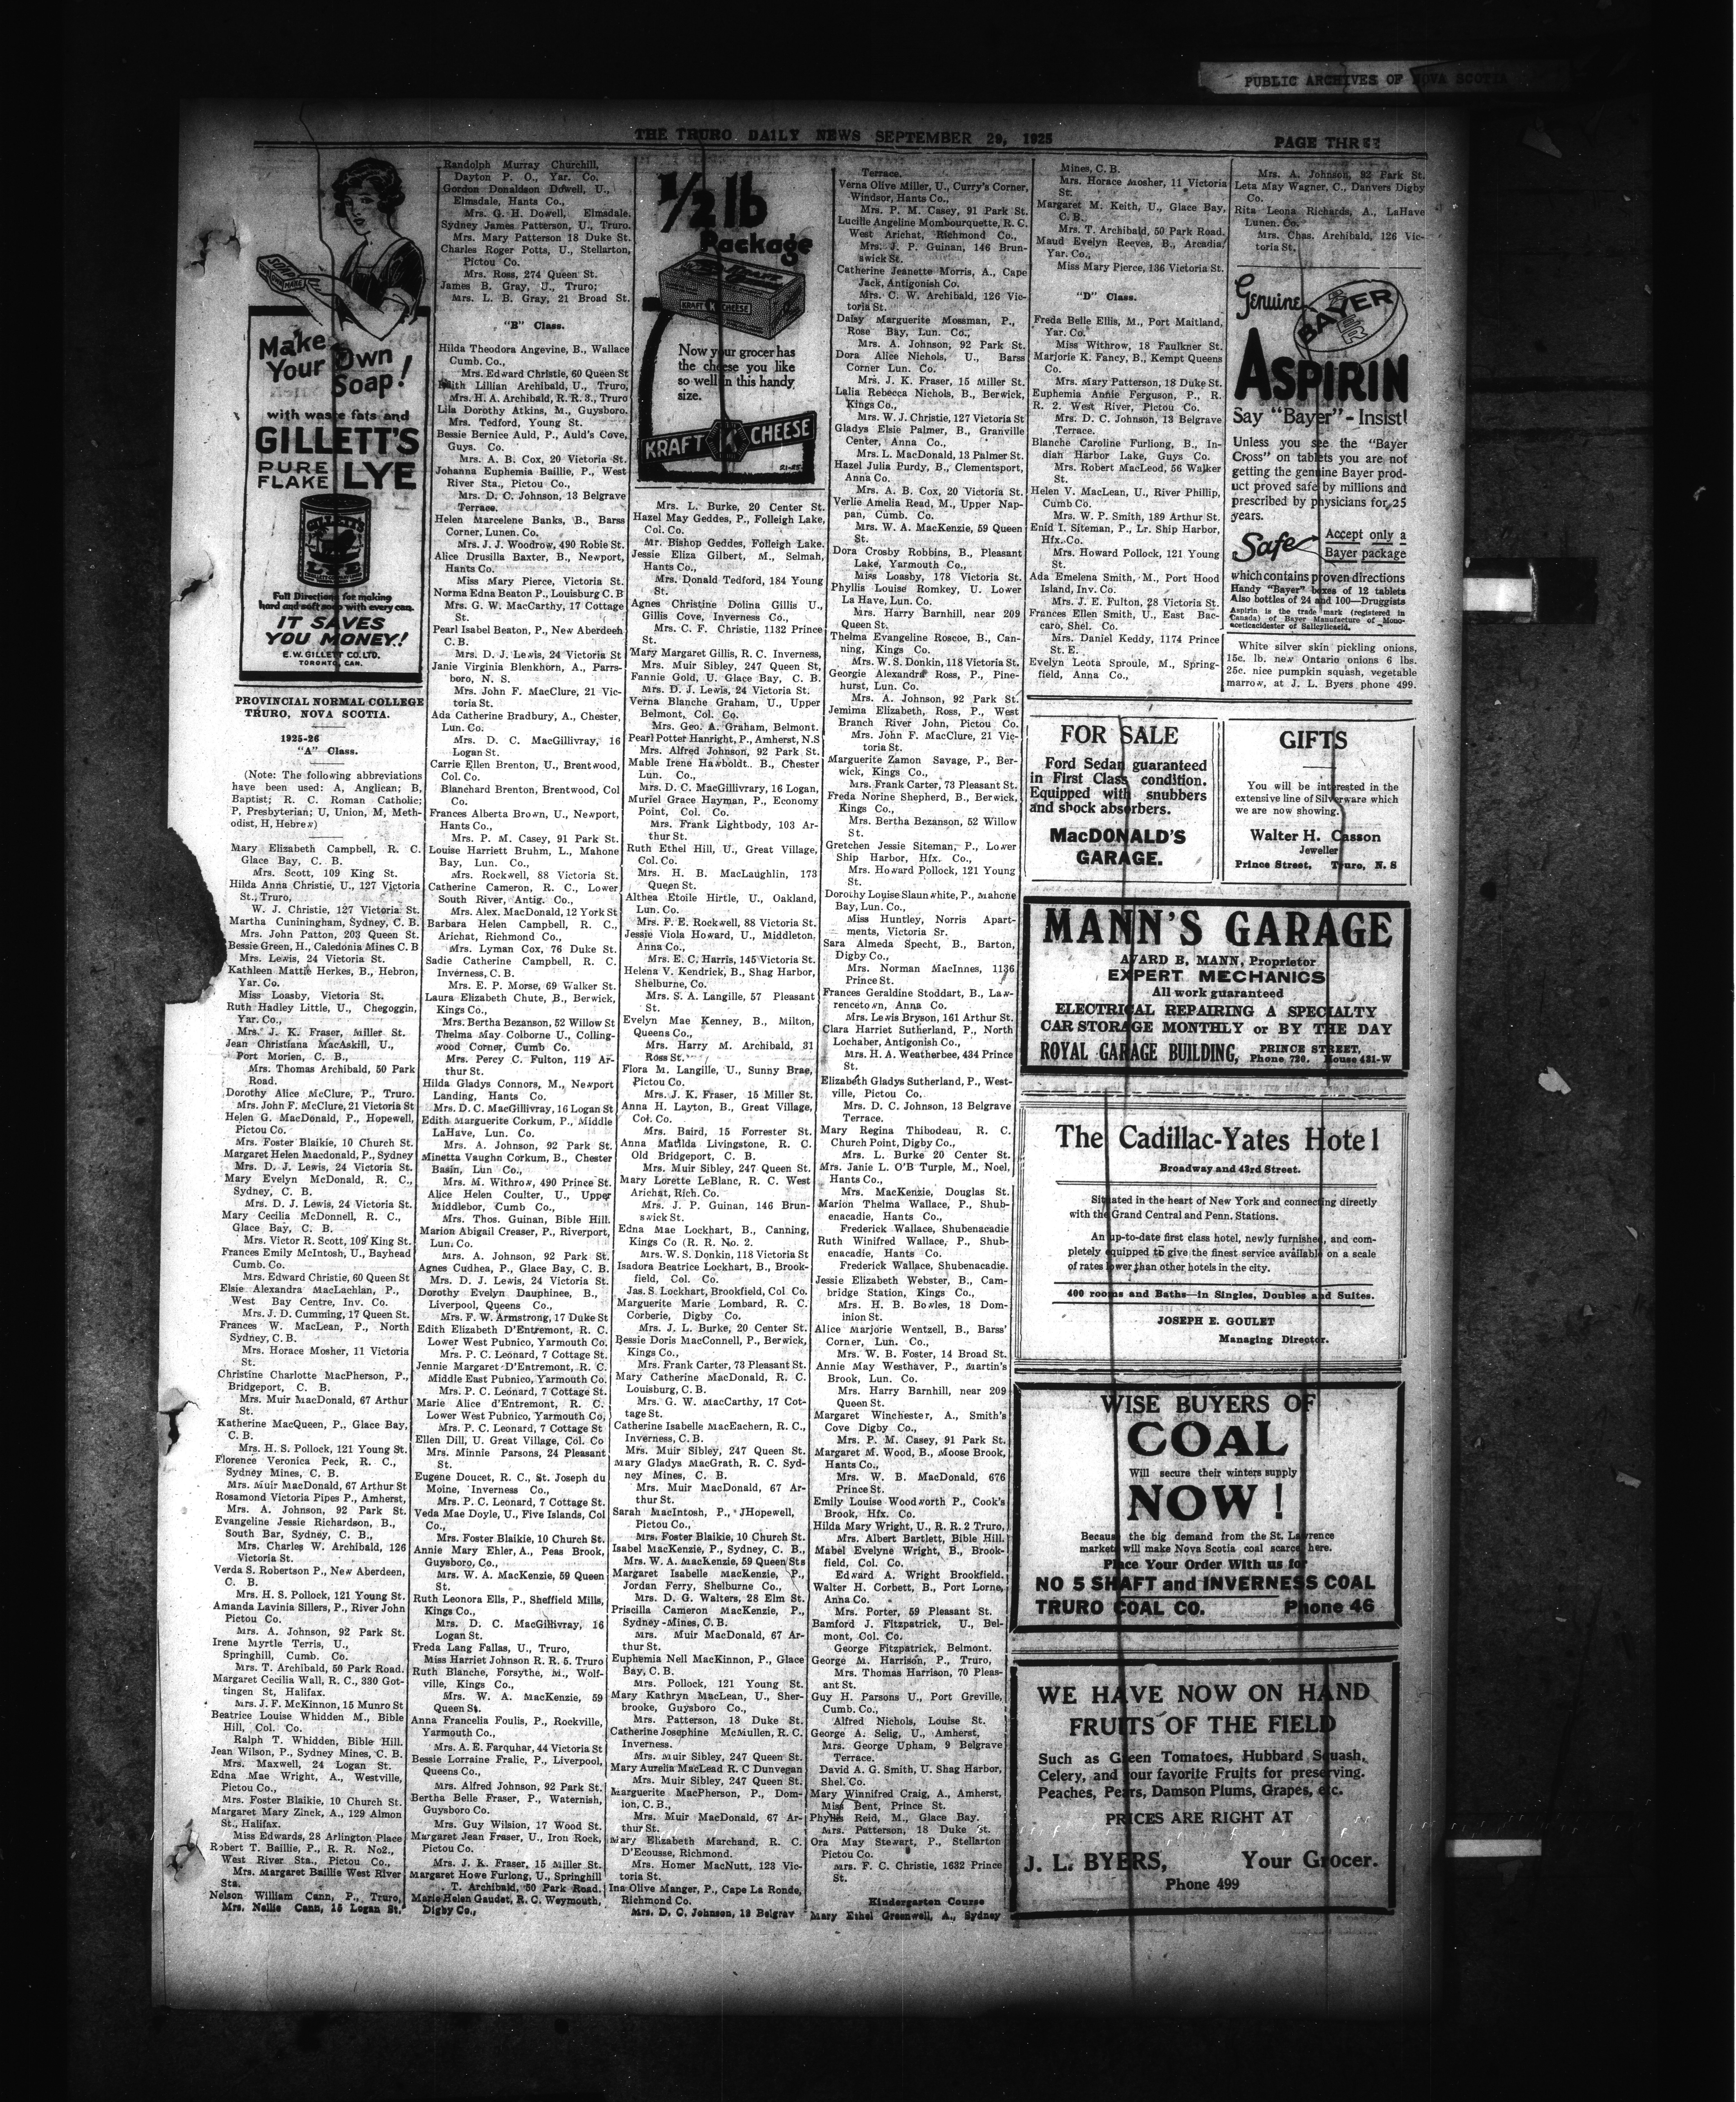 PUBLIC ARCHIVES OF NOVA SCOTIA
THE TRURO DAILY NEWS SEPTEMBER 29, 1925
PAGE THREE
SOAP
Make
Your Own
Soap!
with waste fats and
GILLETT'S
PURE
FLAKE LYE
GILLETT'S
LYE
Full Directions for making
hard and soft soap with every can.
IT SAVES
YOU MONEY!
E.W. GILLETT CO. LTD.
TORONTO, CAN.
PROVINCIAL NORMAL COLLEGE
TRURO, NOVA SCOTIA.
1925-26
"A" Class.
(Note: The following abbreviations
have been used: A, Anglican; B,
Baptist; R. C. Roman Catholic;
P, Presbyterian; U, Union, M, Meth-
odist, H, Hebrew)
Mary Elizabeth Campbell, R. C.
Glace Bay, C. B.
Mrs. Scott, 109 King St.
Hilda Anna Christie, U., 127 Victoria
St., Truro,
W. J. Christie, 127 Victoria St.
Martha Cuniningham, Sydney, C. B.
Mrs. John Patton, 203 Queen St.
Bessie Green, H., Caledonia Mines C. B
Mrs. Lewis, 24 Victoria St.
Kathleen Mattie Herkes, B., Hebron,
Yar. Co.
Miss Loasby, Victoria St.
Ruth Hadley Little, U., Chegoggin,
Yar. Co.,
Mrs. J. K. Fraser, Miller St.
Jean Christiana MacAskill, U.,
Port Morien, C. B.,
Mrs. Thomas Archibald, 50 Park
Road.
Dorothy Alice McClure, P., Truro.
Mrs. John F. McClure, 21 Victoria St
Helen G. MacDonald, P., Hopewell,
Pictou Co.
Mrs. Foster Blaikie, 10 Church St.
Margaret Helen Macdonald, P., Sydney
Mrs. D. J. Lewis, 24 Victoria St.
Mary Evelyn McDonald, R. C.,
Sydney, C. B.
Mrs. D. J. Lewis, 24 Victoria St.
Mary Cecilia McDonnell, R. C.,
Glace Bay, C. B.
Mrs. Victor R. Scott, 109 King St.
Frances Emily McIntosh, U., Bayhead
Cumb. Co.
Mrs. Edward Christie, 60 Queen St
Elsie Alexandra MacLachlan, P.,
West Bay Centre, Inv. Co.
Mrs. J. D. Cumming, 17 Queen St.
Frances W. MacLean, P., North
Sydney, C. B.
Mrs. Horace Mosher, 11 Victoria
St.
Christine Charlotte MacPherson, P.,
Bridgeport, C. B.
Mrs. Muir MacDonald, 67 Arthur
St.
Katherine MacQueen, P., Glace Bay,
C. B.
Mrs. H. S. Pollock, 121 Young St.
Florence Veronica Peck, R. C.,
Sydney Mines, C. B.
Mrs. Muir MacDonald, 67 Arthur St
Rosamond Victoria Pipes P., Amherst,
Mrs. A. Johnson, 92 Park St.
Evangeline Jessie Richardson, B.,
South Bar, Sydney, C. B.,
Mrs. Charles W. Archibald, 126
Victoria St.
Verda S. Robertson P., New Aberdeen,
C. B.
Mrs. H. S. Pollock, 121 Young St.
Amanda Lavinia Sillers, P., River John
Pictou Co.
Mrs. A. Johnson, 92 Park St.
Irene Myrtle Terris, U.,
Springhill, Cumb. Co.
Mrs. T. Archibald, 50 Park Road.
Margaret Cecilia Wall, R. C., 330 Got-
tingen St, Halifax.
Mrs. J. F. McKinnon, 15 Munro St
Beatrice Louise Whidden M., Bible
Hill, Col. Co.
Ralph T. Whidden, Bible Hill.
Jean Wilson, P., Sydney Mines, C. B.
Mrs. Maxwell, 24 Logan St.
Edna Mae Wright, A., Westville,
Pictou Co.,
Mrs. Foster Blaikie, 10 Church St.
Margaret Mary Zinck, A., 129 Almon
St., Halifax.
Miss Edwards, 28 Arlington Place
Robert T. Baillie, P., R. R. No2.,
West River Sta., Pictou Co.,
Mrs. Margaret Baillie West River
Sta.
Nelson William Cann, P., Truro,
Mrs. Nellie Cann, 15 Logan St.
Randolph Murray Churchill,
Dayton P. O., Yar. Co.
Gordon Donaldson Dowell, U.,
Elmsdale, Hants Co.,
Mrs. G. H. Dowell, Elmsdale.
Sydney James Patterson, U., Truro.
Mrs. Mary Patterson 18 Duke St.
Charles Roger Potts, U., Stellarton,
Pictou Co.
Mrs. Ross, 274 Queen St.
James B. Gray, U., Truro;
Mrs. L. B. Gray, 21 Broad St.
"B" Class.
Hilda Theodora Angevine, B., Wallace
Cumb. Co.,
Mrs. Edward Christie, 60 Queen St
Edith Lillian Archibald, U., Truro,
Mrs. H. A. Archibald, R. R. 3., Truro
Lila Dorothy Atkins, M., Guysboro.
Mrs. Tedford, Young St.
Bessie Bernice Auld, P., Auld's Cove,
Guys. Co.
Mrs. A. B. Cox, 20 Victoria St.
Johanna Euphemia Baillie, P., West
River Sta., Pictou Co.,
Mrs. D. C. Johnson, 13 Belgrave
Terrace.
Helen Marcelene Banks, B., Barss
Corner, Lunen. Co.
Mrs. J. J. Woodrow, 490 Robie St.
Alice Drusilla Baxter, B., Newport,
Hants Co.
Miss Mary Pierce, Victoria St.
Norma Edna Beaton P., Louisburg C. B
Mrs. G. W. MacCarthy, 17 Cottage
St.
Pearl Isabel Beaton, P., New Aberdeeh
C. B.
Mrs. D. J. Lewis, 24 Victoria St
Janie Virginia Blenkhorn, A., Parrs-
boro, N. S.
Mrs. John F. MacClure, 21 Vic-
toria St.
Ada Catherine Bradbury, A., Chester,
Lun. Co.
Mrs. D. C. MacGillivray, 16
Logan St.
Carrie Ellen Brenton, U., Brentwood,
Col. Co.
Blanchard Brenton, Brentwood, Col
Co.
Frances Alberta Brown, U., Newport,
Hants Co.,
Mrs. P. M. Casey, 91 Park St.
Louise Harriett Bruhm, L., Mahone
Bay, Lun. Co.,
Mrs. Rockwell, 88 Victoria St.
Catherine Cameron, R. C., Lower
South River, Antig. Co.,
Mrs. Alex. MacDonald, 12 York St
Barbara Helen Campbell, R. C.,
Arichat, Richmond Co.,
Mrs. Lyman Cox, 76 Duke St.
Sadie Catherine Campbell, R. C.
Inverness, C. B.
Mrs. E. P. Morse, 69 Walker St.
Laura Elizabeth Chute, B., Berwick,
Kings Co.,
Mrs. Bertha Bezanson, 52 Willow St
Thelma May Colborne U., Colling-
wood Corner, Cumb Co.
Mrs. Percy C. Fulton, 119 Ar-
thur St.
Hilda Gladys Connors, M., Newport
Landing, Hants Co.
Mrs. D. C. MacGillivray, 16 Logan St
Edith Marguerite Corkum, P., Middle
LaHave, Lun. Co.
Mrs. A. Johnson, 92 Park St.
Minetta Vaughn Corkum, B., Chester
Basin, Lun Co.,
Mrs. M. Withrow, 490 Prince St.
Alice Helen Coulter, U., Upper
Middlebor, Cumb Co.,
Mrs. Thos. Guinan, Bible Hill.
Marion Abigail Creaser, P., Riverport,
Lun. Co.
Mrs. A. Johnson, 92 Park St.
Agnes Cudhea, P., Glace Bay, C. B.
Mrs. D. J. Lewis, 24 Victoria St.
Dorothy Evelyn Dauphinee, B.,
Liverpool, Queens Co.,
Mrs. F. W. Armstrong, 17 Duke St
Edith Elizabeth D'Entremont, R. C.
Lower West Pubnico, Yarmouth Co.
Mrs. P. C. Leonard, 7 Cottage St.
Jennie Margaret D'Entremont, R. C.
Middle East Pubnico, Yarmouth Co.
Mrs. P. C. Leonard, 7 Cottage St.
Marie Alice d'Entremont, R. C.
Lower West Pubnico, Yarmouth Co,
Mrs. P. C. Leonard, 7 Cottage St
Ellen Dill, U. Great Village, Col. Co
Mrs. Minnie Parsons, 24 Pleasant
St.
Eugene Doucet, R. C., St. Joseph du
Moine, Inverness Co.,
Mrs. P. C. Leonard, 7 Cottage St.
Veda Mae Doyle, U., Five Islands, Col
Co.,
Mrs. Foster Blaikie, 10 Church St.
Annie Mary Ehler, A., Peas Brook,
Guysboro, Co.,
Mrs. W. A. MacKenzie, 59 Queen
St.
Ruth Leonora Ells, P., Sheffield Mills,
Kings Co.,
Mrs. D. C. MacGillivray, 16
Logan St.
Freda Lang Fallas, U., Truro,
Miss Harriet Johnson R. R. 5. Truro
Ruth Blanche, Forsythe, M., Wolf-
ville, Kings Co.,
Mrs. W. A. MacKenzie, 59
Queen St.
Anna Francelia Foulis, P., Rockville,
Yarmouth Co.,
Mrs. A. E. Farquhar, 44 Victoria St
Bessie Lorraine Fralic, P., Liverpool,
Queens Co.,
Mrs. Alfred Johnson, 92 Park St.
Bertha Belle Fraser, P., Waternish,
Guysboro Co.
Mrs. Guy Wilsion, 17 Wood St.
Margaret Jean Fraser, U., Iron Rock,
Pictou Co.
Mrs. J. K. Fraser, 15 Miller St.
Margaret Howe Furlong, U., Springhill
T. Archibald, 50 Park Road.
Marie Helen Gaudet, R. C. Weymouth,
Digby Co.,
1/2 lb
Package
KRAFT CHEESE
Now your grocer has
the cheese you like
so well in this handy
size.
KRAFT K CHEESE
Mrs. L. Burke, 20 Center St.
Hazel May Geddes, P., Folleigh Lake,
Col. Co.
Mr. Bishop Geddes, Folleigh Lake.
Jessie Eliza Gilbert, M., Selmah,
Hants Co.,
Mrs. Donald Tedford, 184 Young
St.
Agnes Christine Dolina Gillis U.,
Gillis Cove, Inverness Co.,
Mrs. C. F. Christie, 1132 Prince
St.
Mary Margaret Gillis, R. C. Inverness,
Mrs. Muir Sibley, 247 Queen St,
Fannie Gold, U. Glace Bay, C. B.
Mrs. D. J. Lewis, 24 Victoria St.
Verna Blanche Graham, U., Upper
Belmont, Col. Co.
Mrs. Geo. A. Graham, Belmont.
Pearl Potter Hanright, P., Amherst, N.S
Mrs. Alfred Johnson, 92 Park St.
Mable Irene Hawboldt.. B., Chester
Lun. Co.,
Mrs. D. C. MacGillivrary, 16 Logan,
Muriel Grace Hayman, P., Economy
Point, Col. Co.
Mrs. Frank Lightbody, 103 Ar-
thur St.
Ruth Ethel Hill, U., Great Village,
Col. Co.
Mrs. H. B. MacLaughlin, 173
Queen St.
Althea Etoile Hirtle, U., Oakland,
Lun. Co.
Mrs. F. E. Rockwell, 88 Victoria St.
Jessie Viola Howard, U., Middleton,
Anna Co.,
Mrs. E. C. Harris, 145 Victoria St.
Helena V. Kendrick, B., Shag Harbor,
Shelburne, Co.
Mrs. S. A. Langille, 57 Pleasant
St.
Evelyn Mae Kenney, B., Milton,
Queens Co.,
Mrs. Harry M. Archibald, 31
Ross St.
Flora M. Langille, U., Sunny Brae,
Pictou Co.
Mrs. J. K. Fraser, 15 Miller St.
Anna H. Layton, B., Great Village,
Col. Co.
Mrs. Baird, 15 Forrester St.
Anna Matilda Livingstone, R. C.
Old Bridgeport, C. B.
Mrs. Muir Sibley, 247 Queen St.
Mary Lorette LeBlanc, R. C. West
Arichat, Rich. Co.
Mrs. J. P. Guinan, 146 Brun-
swick St.
Edna Mae Lockhart, B., Canning,
Kings Co (R. R. No. 2.
Mrs. W. S. Donkin, 118 Victoria St
Isadora Beatrice Lockhart, B., Brook-
field, Col. Co.
Jas. S. Lockhart, Brookfield, Col. Co.
Marguerite Marie Lombard, R. C.
Corberie, Digby Co.
Mrs. J. L. Burke, 20 Center St.
Bessie Doris MacConnell, P., Berwick,
Kings Co.,
Mrs. Frank Carter, 73 Pleasant St.
Mary Catherine MacDonald, R. C.
Louisburg, C. B.
Mrs. G. W. MacCarthy, 17 Cot-
tage St.
Catherine Isabelle MacEachern, R. C.,
Inverness, C. B.
Mrs. Muir Sibley, 247 Queen St.
Mary Gladys MacGrath, R. C. Syd-
ney Mines, C. B.
Mrs. Muir MacDonald, 67 Ar-
thur St.
Sarah MacIntosh, P., JHopewell,
Pictou Co.,
Mrs. Foster Blaikie, 10 Church St.
Isabel MacKenzie, P., Sydney, C. B.,
Mrs. W. A. MacKenzie, 59 Queen Sts
Margaret Isabelle MacKenzie, P.,
Jordan Ferry, Shelburne Co.,
Mrs. D. G. Walters, 28 Elm St.
Priscilla Cameron MacKenzie, P.,
Sydney-Mines, C. B.
Mrs. Muir MacDonald, 67 Ar-
thur St.
Euphemia Nell MacKinnon, P., Glace
Bay, C. B.
Mrs. Pollock, 121 Young St.
Mary Kathryn MacLean, U., Sher-
brooke, Guysboro Co.,
Mrs. Patterson, 18 Duke St.
Catherine Josephine McMullen, R. C.
Inverness.
Mrs. Muir Sibley, 247 Queen St.
Mary Aurelia MacLead R. C Dunvegan
Mrs. Muir Sibley, 247 Queen St.
Marguerite MacPherson, P., Dom-
ion, C. B.,
Mrs. Muir MacDonald, 67 Ar-
thur St.
Mary Elizabeth Marchand, R. C.
D'Ecousse, Richmond.
Mrs. Homer MacNutt, 123 Vic-
toria St.
Ina Olive Manger, P., Cape La Ronde,
Richmond Co.
Mrs. D. C. Johnson, 13 Belgrav
Terrace.
Verna Olive Miller, U., Curry's Corner,
Windsor, Hants Co.,
Mrs. P. M. Casey, 91 Park St.
Lucille Angeline Mombourquette, R. C.
West Arichat, Richmond Co.,
Mrs. J. P. Guinan, 146 Brun-
swick St.
Catherine Jeanette Morris, A., Cape
Jack, Antigonish Co.
Mrs. C. W. Archibald, 126 Vic-
toria St.
Daisy Marguerite Mossman, P.,
Rose Bay, Lun. Co.,
Mrs. A. Johnson, 92 Park St.
Dora Alice Nichols, U., Barss
Corner Lun. Co.
Mrs. J. K. Fraser, 15 Miller St.
Lalia Rebecca Nichols, B., Berwick,
Kings Co.,
Mrs. W. J. Christie, 127 Victoria St
Gladys Elsie Palmer, B., Granville
Center, Anna Co.,
Mrs. L. MacDonald, 13 Palmer St.
Hazel Julia Purdy, B., Clementsport,
Anna Co.
Mrs. A. B. Cox, 20 Victoria St.
Verlie Amelia Read, M., Upper Nap-
pan, Cumb. Co.
Mrs. W. A. MacKenzie, 59 Queen
St.
Dora Crosby Robbins, B., Pleasant
Lake, Yarmouth Co.,
Miss Loasby, 178 Victoria St.
Phyllis Louise Romkey, U. Lower
La Have, Lun. Co.
Mrs. Harry Barnhill, near 209
Queen St.
Thelma Evangeline Roscoe, B., Can-
ning, Kings Co.
Mrs. W. S. Donkin, 118 Victoria St.
Georgie Alexandra Ross, P., Pine-
hurst, Lun. Co.
Mrs. A. Johnson, 92 Park St.
Jemima Elizabeth, Ross, P., West
Branch River John, Pictou Co.
Mrs. John F. MacClure, 21 Vic-
toria St.
Marguerite Zamon Savage, P., Ber-
wick, Kings Co.,
Mrs. Frank Carter, 73 Pleasant St.
Freda Norine Shepherd, B., Berwick,
Kings Co.,
Mrs. Bertha Bezanson, 52 Willow
St.
Gretchen Jessie Siteman, P., Lower
Ship Harbor, Hfx. Co.,
Mrs. Howard Pollock, 121 Young
St.
Dorothy Louise Slaunwhite, P., Mahone
Bay, Lun. Co.,
Miss Huntley, Norris Apart-
ments, Victoria Sr.
Sara Almeda Specht, B., Barton,
Digby Co.,
Mrs. Norman MacInnes, 1136
Prince St.
Frances Geraldine Stoddart, B., Law-
rencetown, Anna Co.
Mrs. Lewis Bryson, 161 Arthur St.
Clara Harriet Sutherland, P., North
Lochaber, Antigonish Co.,
Mrs. H. A. Weatherbee, 434 Prince
St.
Elizabeth Gladys Sutherland, P., West-
ville, Pictou Co.
Mrs. D. C. Johnson, 13 Belgrave
Terrace.
Mary Regina Thibodeau, R. C.
Church Point, Digby Co.,
Mrs. L. Burke 20 Center St.
Mrs. Janie L. O'B Turple, M., Noel,
Hants Co.,
Mrs. MacKenzie, Douglas St.
Marion Thelma Wallace, P., Shub-
enacadie, Hants Co.,
Frederick Wallace, Shubenacadie
Ruth Winifred Wallace, P., Shub-
enacadie, Hants Co.
Frederick Wallace, Shubenacadie.
Jessie Elizabeth Webster, B., Cam-
bridge Station, Kings Co.,
Mrs. H. B. Bowles, 18 Dom-
inion St.
Alice Marjorie Wentzell, B., Barss'
Corner, Lun. Co.,
Mrs. W. B. Foster, 14 Broad St.
Annie May Westhaver, P., Martin's
Brook, Lun. Co.
Mrs. Harry Barnhill, near 209
Queen St.
Margaret Winchester, A., Smith's
Cove Digby Co.,
Mrs. P. M. Casey, 91 Park St.
Margaret M. Wood, B., Moose Brook,
Hants Co.,
Mrs. W. B. MacDonald, 676
Prince St.
Emily Louise Woodworth P., Cook's
Brook, Hfx. Co.
Hilda Mary Wright, U., R. R. 2 Truro,
Mrs. Albert Bartlett, Bible Hill.
Mabel Evelyne Wright, B., Brook-
field, Col. Co.
Edward A. Wright Brookfield.
Walter H. Corbett, B., Port Lorne,
Anna Co.
Mrs. Porter, 59 Pleasant St.
Bamford J. Fitzpatrick, U., Bel-
mont, Col. Co.
George Fitzpatrick, Belmont.
George M. Harrison, P., Truro,
Mrs. Thomas Harrison, 70 Pleas-
ant St.
Guy H. Parsons U., Port Greville,
Cumb. Co.,
Alfred Nichols, Louise St.
George A. Selig, U., Amherst,
Mrs. George Upham, 9 Belgrave
Terrace.
David A. G. Smith, U. Shag Harbor,
Shel. Co.
Mary Winnifred Craig, A., Amherst,
Miss Bent, Prince St.
Phyllis Reid, M., Glace Bay.
Mrs. Patterson, 18 Duke St.
Ora May Stewart, P., Stellarton
Pictou Co.
Mrs. F. C. Christie, 1632 Prince
St.
Kindergarten Course
Mary Ethel Greenwell, A., Sydney
Mines, C. B.
Mrs. Horace Mosher, 11 Victoria
St.
Margaret M. Keith, U., Glace Bay,
C. B.
Mrs. T. Archibald, 50 Park Road.
Maud Evelyn Reeves, B., Arcadia,
Yar. Co.,
Miss Mary Pierce, 136 Victoria St.
"D" Class.
Freda Belle Ellis, M., Port Maitland,
Yar. Co.
Miss Withrow, 18 Faulkner St.
Marjorie K. Fancy, B., Kempt Queens
Co.
Mrs. Mary Patterson, 18 Duke St.
Euphemia Annie Ferguson, P., R.
R. 2. West River, Pictou Co.
Mrs. D. C. Johnson, 13 Belgrave
Terrace.
Blanche Caroline Furliong, B., In-
dian Harbor Lake, Guys Co.
Mrs. Robert MacLeod, 56 Walker
St.
Helen V. MacLean, U., River Phillip,
Cumb Co.
Mrs. W. P. Smith, 189 Arthur St.
Enid I. Siteman, P., Lr. Ship Harbor,
Hfx. Co.
Mrs. Howard Pollock, 121 Young
St.
Ada Emelena Smith, M., Port Hood
Island, Inv. Co.
Mrs. J. E. Fulton, 28 Victoria St.
Frances Ellen Smith, U., East Bac-
caro, Shel. Co.
Mrs. Daniel Keddy, 1174 Prince
St. E.
Evelyn Leota Sproule, M., Spring-
field, Anna Co.,
Mrs. A. Johnson, 92 Park St.
Leta May Wagner, C., Danvers Digby
Co.
Rita Leona Richards, A., LaHave
Lunen. Co.
Mrs. Chas. Archibald, 126 Vic-
toria St.
Genuine
BAYER
ASPIRIN
Say "Bayer" - Insist!
Unless you see the "Bayer
Cross" on tablets you are not
getting the genuine Bayer prod-
uct proved safe by millions and
prescribed by physicians for 25
years.
Safe
Accept only a
Bayer package
which contains proven directions
Handy "Bayer" boxes of 12 tablets
Also bottles of 24 and 100—Druggists
Aspirin is the trade mark (registered in
Canada) of Bayer Manufacture of Mono-
aceticacidester of Salicylicacid.
White silver skin pickling onions,
15c. lb. new Ontario onions 6 lbs.
25c. nice pumpkin squash, vegetable
marrow, at J. L. Byers phone 499.
FOR SALE
Ford Sedan guaranteed
in First Class condition.
Equipped with snubbers
and shock absorbers.
MacDONALD'S
GARAGE.
GIFTS
You will be interested in the
extensive line of Silverware which
we are now showing.
Walter H. Casson
Jeweller
Prince Street, Truro, N. S
MANN'S GARAGE
AVARD B. MANN, Proprietor
EXPERT MECHANICS
All work guaranteed
ELECTRICAL REPAIRING A SPECIALTY
CAR STORAGE MONTHLY or BY THE DAY
ROYAL GARAGE BUILDING, PRINCE STREET,
Phone 720. House 431-W
The Cadillac-Yates Hotel
Broadway and 43rd Street.
Situated in the heart of New York and connecting directly
with the Grand Central and Penn. Stations.
An up-to-date first class hotel, newly furnished, and com-
pletely equipped to give the finest service available on a scale
of rates lower than other hotels in the city.
400 rooms and Baths—in Singles, Doubles and Suites.
JOSEPH E. GOULET
Managing Director.
WISE BUYERS OF
COAL
Will secure their winters supply
NOW!
Because the big demand from the St. Lawrence
markets will make Nova Scotia coal scarce here.
Place Your Order With us for
NO 5 SHAFT and INVERNESS COAL
TRURO COAL CO. Phone 46
WE HAVE NOW ON HAND
FRUITS OF THE FIELD
Such as Green Tomatoes, Hubbard Squash,
Celery, and your favorite Fruits for preserving.
Peaches, Pears, Damson Plums, Grapes, etc.
PRICES ARE RIGHT AT
J. L. BYERS, Your Grocer.
Phone 499